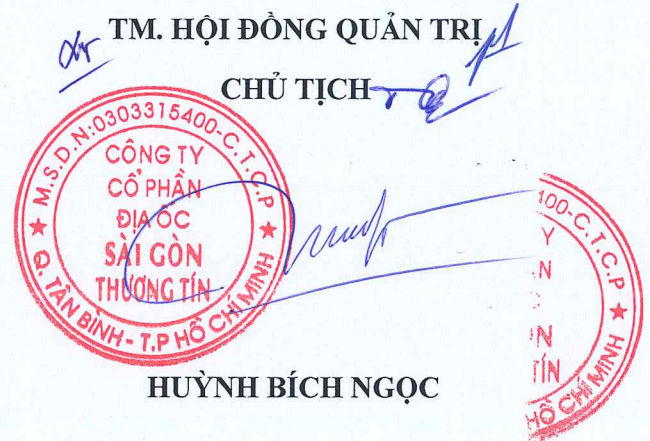 TM. HỘI ĐỒNG QUẢN TRỊ
CHỦ TỊCH
★ M.S.D.N:0303315400-C.T.C.P ★
CÔNG TY
CỔ PHẦN
ĐỊA ỐC
SÀI GÒN
THƯƠNG TÍN
Q. TÂN BÌNH - T.P HỒ CHÍ MINH
400-C.T.C.P ★
Y
N
N
TÍN
HỒ CHÍ MINH
HUỲNH BÍCH NGỌC